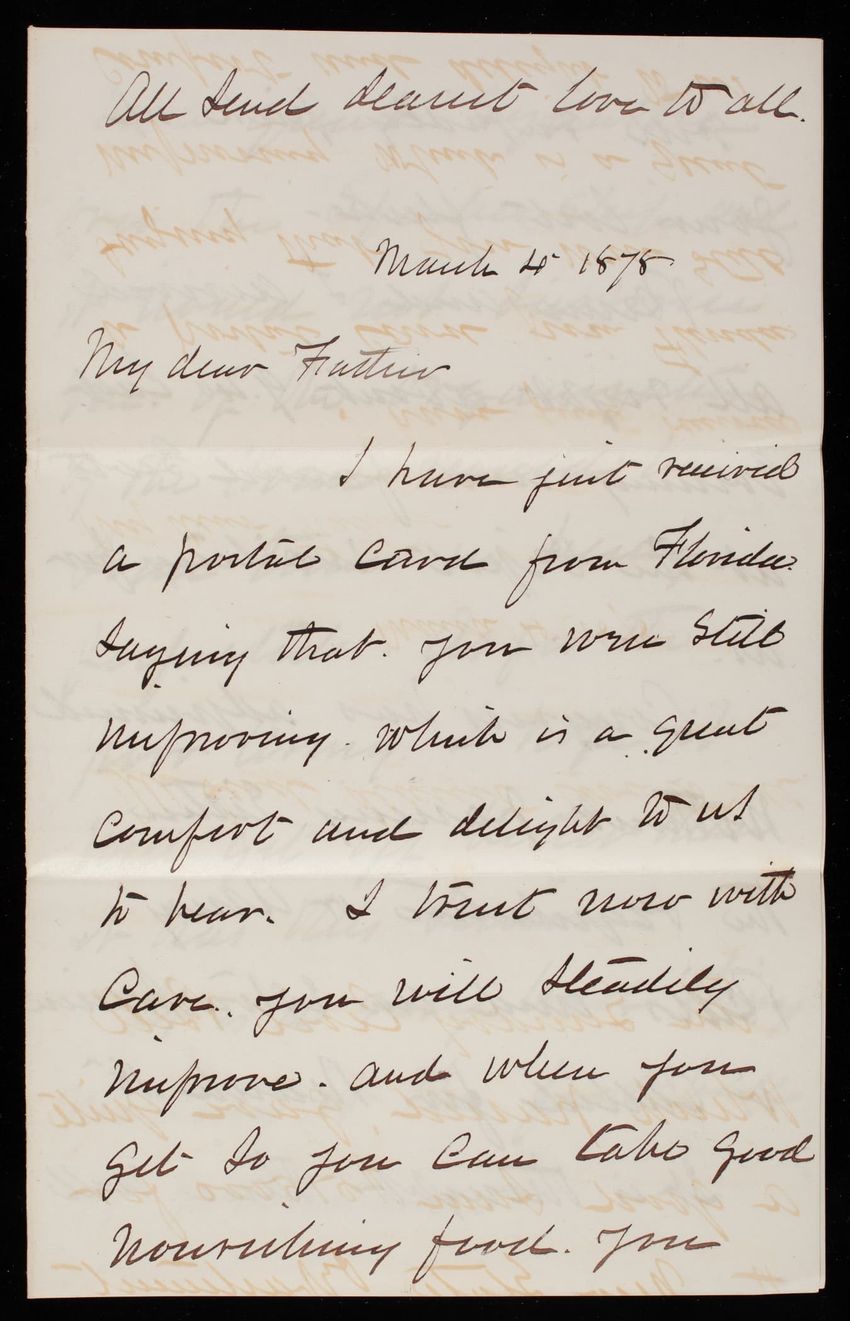 All send dearest love to all.
March 4 1878
My dear Father
I have just received
a postal card from Florida
saying that you were still
improving. which is a great
comfort and delight to us
to hear. I trust now with
care. you will steadily
improve. and when you
get so you can take good
nourishing food. you